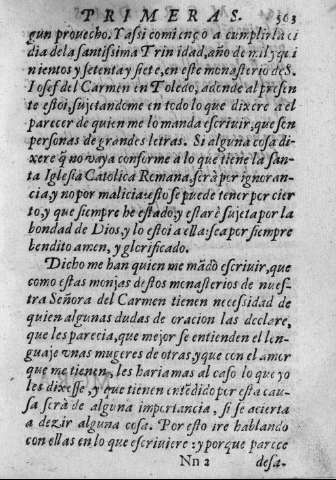 PRIMERAS. 563
gun prouecho. Y assi comienço a cumplirla ci
dia de la santissima Trinidad, año de mil y qui
nientos y setenta y siete, en este monasterio de S.
Iosef del Carmen en Toledo, adonde al presen
te estoi, sujetandome en todo lo que dixere a el
parecer de quien me lo manda escriuir, que son
personas de grandes letras. Si alguna cosa di-
xere q̃ no vaya conforme a lo que tiene la san-
ta Iglesia Catolica Romana, serà por ignoran-
cia, y no por malicia: esto se puede tener por cier
to, y que siempre he estado, y estarè sujeta por la
bondad de Dios, y lo estoi a ella: sea por siempre
bendito amen, y glorificado.
Dicho me han quien me mãdò escriuir, que
como estas monjas destos monasterios de nues-
tra Señora del Carmen tienen necessidad de
quien algunas dudas de oracion las declare,
que les parecia, que mejor se entienden el len-
guaje vnas mugeres de otras, y que con el amor
que me tienen, les hariamas al caso lo que yo
les dixesse, y que tienen entẽdido por esta cau-
sa serà de alguna importancia, si se acierta
a dezir alguna cosa. Por esto ire hablando
con ellas en lo que escriuiere: y porque parece
Nn 2 desa-